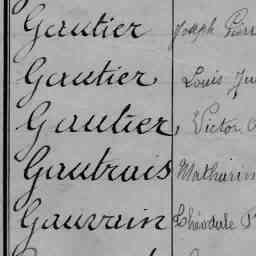 Gautier Joseph Pierr
Gautier Louis Ju
Gautier, Victor
Gautrais Mathurin
Gauvain Théodule P